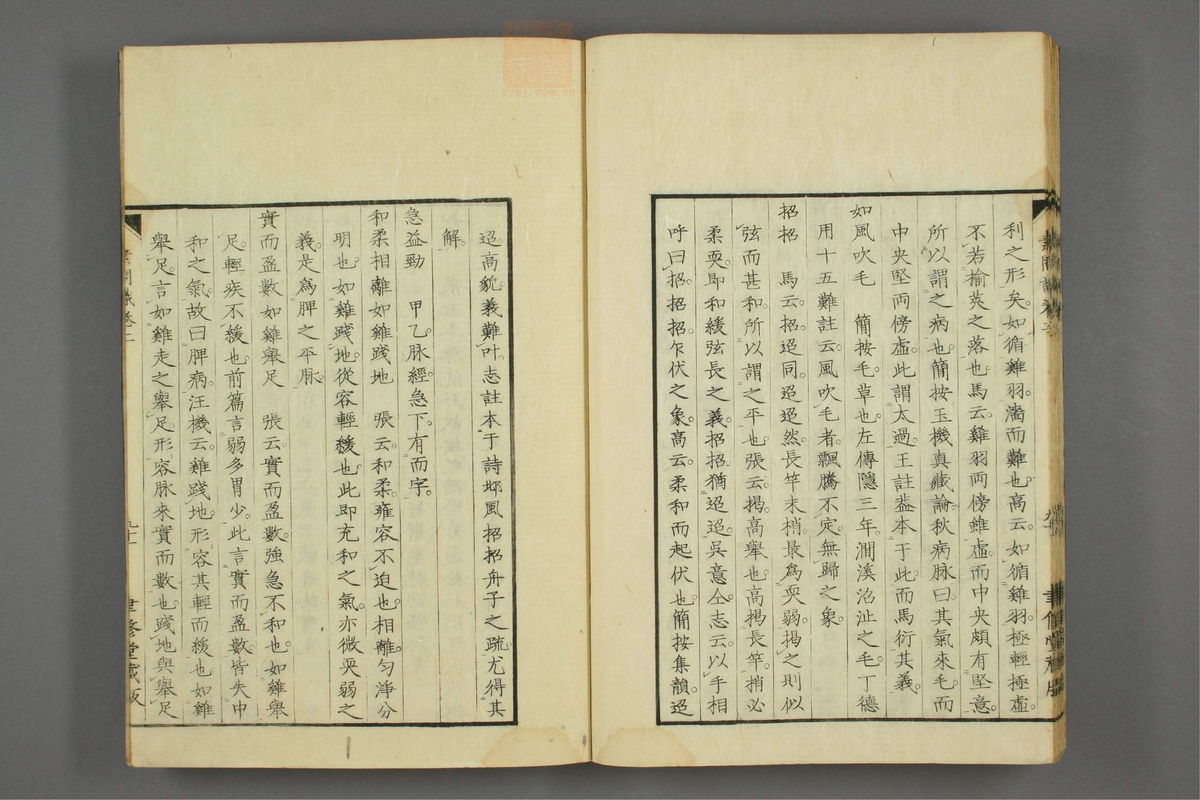 利之形矣。如循雞羽。濇而難也。高云。如循雞羽。極輕極虛。
不若榆莢之落也。馬云。雞羽兩傍雖虛。而中央頗有堅意。
所以謂之病也。簡按玉機真藏論。秋病脉曰。其氣來毛。而
中央堅。兩傍虛。此謂太過。王註蓋本于此。而馬衍其義。
如風吹毛　簡按毛。草也。左傳隱三年。澗溪沼沚之毛。丁德
用十五難註云。風吹毛者。飄騰不定。無歸之象。
招招　馬云。招迢同。迢迢然。長竿末梢。最爲耎弱。揭之則似
弦而甚和。所以謂之平也。張云。揭高舉也。高揭長竿。梢必
柔耎。即和緩弦長之義。招招猶迢迢。吳意仝。志云。以手相
呼曰招。招招。乍伏之象。高云。柔和而起伏也。簡按集韻。迢
迢高貌。義難叶。志註本于詩邶風招招舟子之疏。尤得其
解。
急益勁　甲乙脉經。急下。有而字。
和柔相離如雞踐地　張云。和柔。雍容不迫也。相離。勻淨分
明也。如雞踐地。從容輕緩也。此即充和之氣。亦微耎弱之
義。是爲脾之平脉。
實而盈數如雞舉足　張云。實而盈數。強急不和也。如雞舉
足。輕疾不緩也。前篇言弱多胃少。此言實而盈數。皆失中
和之氣。故曰脾病。汪機云。雞踐地。形容其輕而緩也。如雞
舉足。言如雞走之舉足。形容脉來實而數也。踐地與舉足